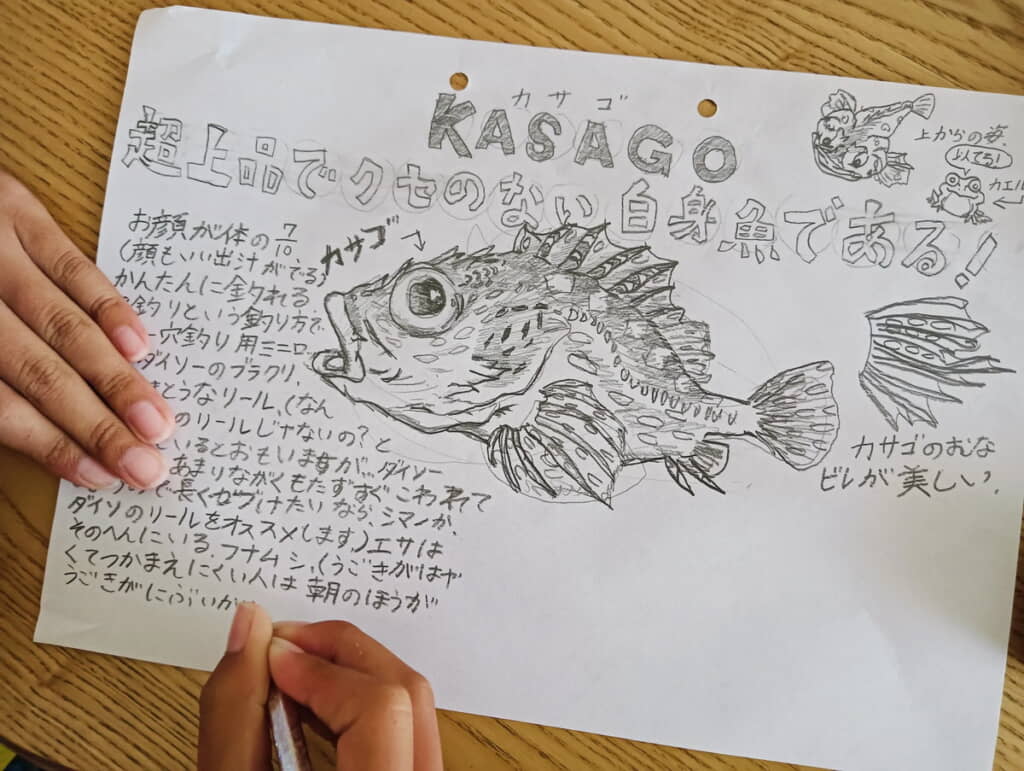 カサゴ
KASAGO
超上品でクセのない白身魚である!
上からの姿。
似てる!
カエル
カサゴ
お顔が体の7/10、
(顔もいい出汁がでる)
かんたんに釣れる
釣りという釣り方で、
穴釣り用ミニロ
ダイソーのブラクリ、
とうなリール、(なん
のリールじゃないの?と
いるとおもいますが、ダイソー
あまりながくもたずすぐこわれて
で長くつづけたいなら、シマノか、
ダイワのリールをオススメします。)エサは
そのへんにいる、フナムシ、(うごきがはや
くてつかまえにくい人は朝のほうが
うごきがにぶいか
カサゴのむな
ビレが美しい。